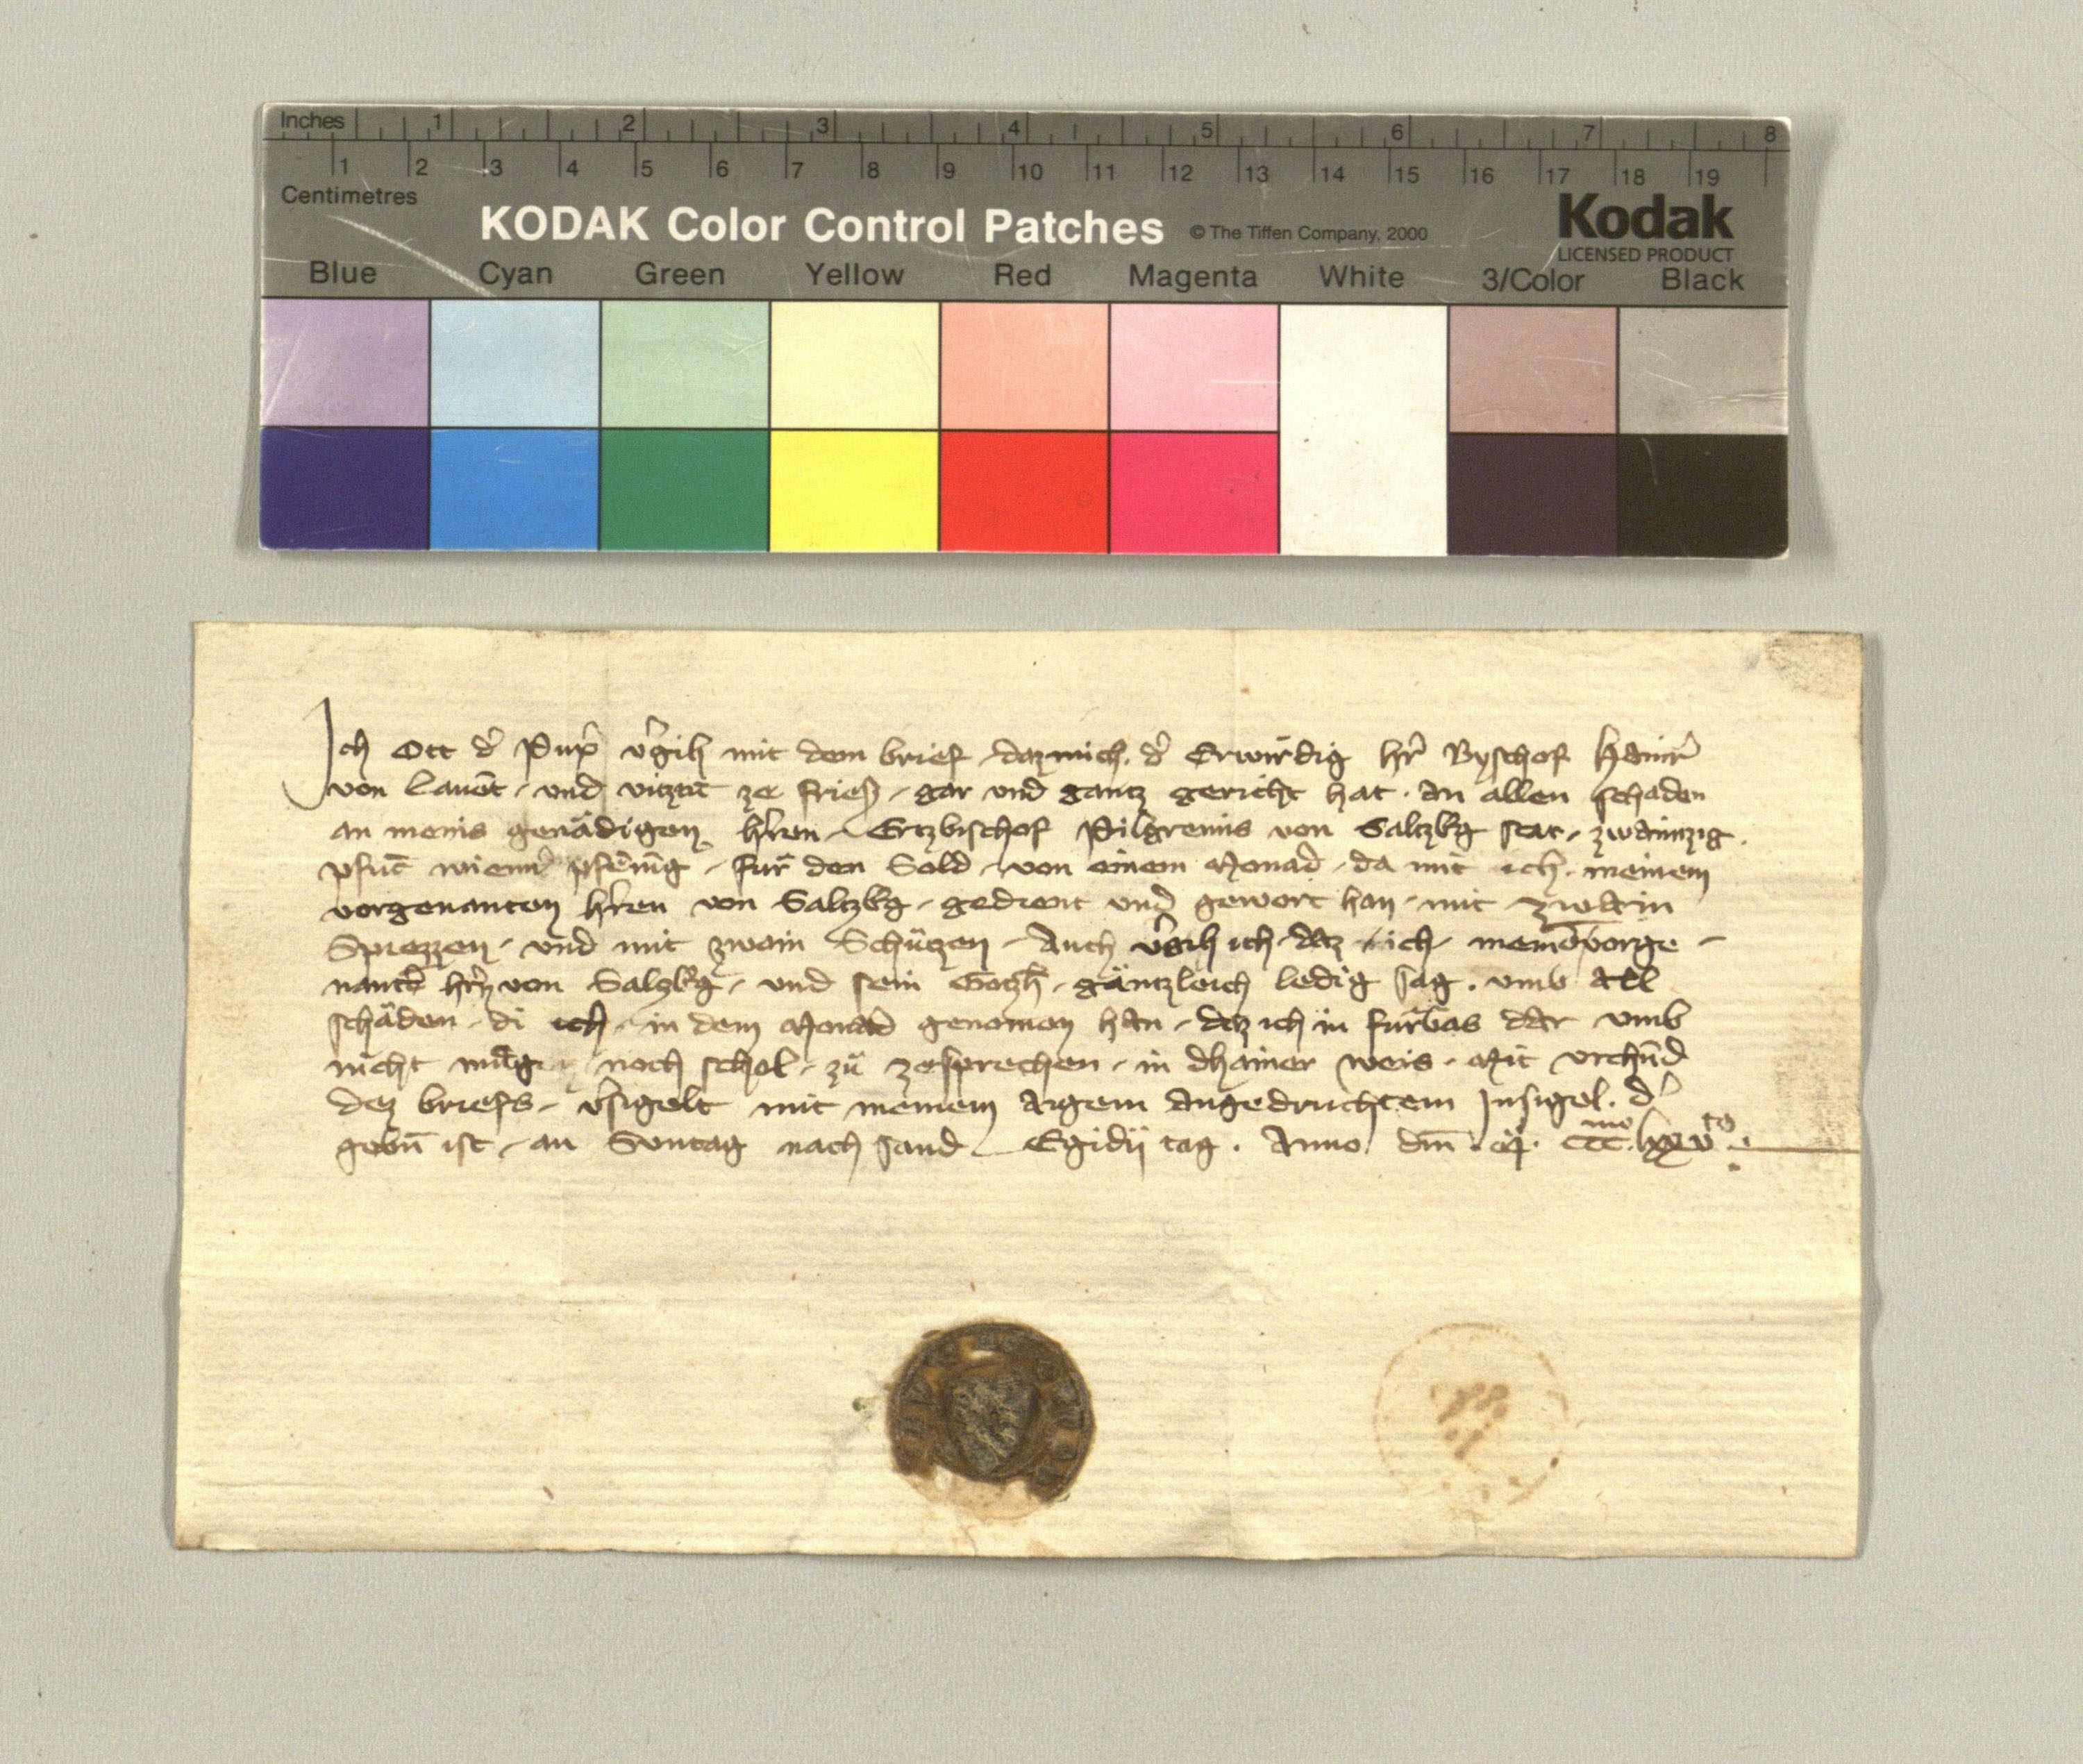 Inches 1 2 3 4 5 6 7 8
1 2 3 4 5 6 7 8 9 10 11 12 13 14 15 16 17 18 19
Centimetres
KODAK Color Control Patches © The Tiffen Company, 2000 Kodak
LICENSED PRODUCT
Blue Cyan Green Yellow Red Magenta White 3/Color Black
Ich Ott d' v'gih mit dem brief daz mich d' Erwirdig h'r Byschof Hainr'
von Lauēt und vitztū ze fries gar und gantz gericht hat an allen schaden
an meins genädigen h'ren Ertzbischof Pilgreims von Saltzb'g stat zwaintzig
pfūt wienn' pfēnīg für den Sold von einem Monad da mit ich meinem
vorgenanten h'ren von Saltzb'g gedient und gewort han mit zwain
Spiezzen und mit zwain Schützen Auch v'gih ich daz ich meinē vorge
nantē h'rn von Salzb'g und sein Gotzh' gäntzleich ledig sag umb all
schäden di ich in dem Monad genomen han daz ich in fürbas dar umb
nicht noch schol zü zesprechen in dhainer weis Mit vrchūd
dez briefs v'sigelt mit meinem aigem angedruchtem Insigel d'
gebn̄ ist an Suntag nach sand Egidij tag Anno dm̄ ccc mo lxxv to